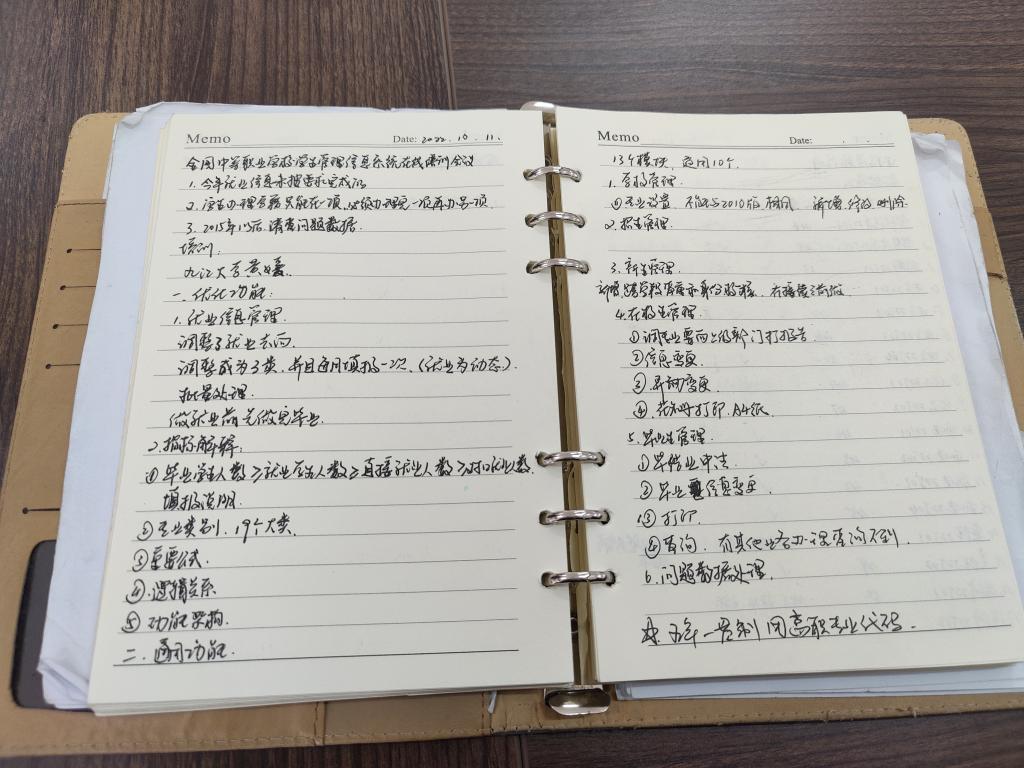 Memo Date: 2022.10.11.
全国中等职业学校学生管理信息系统在线培训会议
1.今年就业信息未按要求完成
2.学生办理学籍只能在一项,必须办理完一项再办另一项.
3.2015年以后.清查问题数据.
培训:
九江大学黄媛.
一.优化功能:
1.就业信息管理.
调整了就业去向.
调整成为3类,并且每月填报一次.(就业为动态).
批量处理.
做就业前先做完毕业.
2.指标解释:
①毕业学生人数≥就业学生人数≥直接就业人数≥对口就业人数.
填报说明.
②专业类别.19个大类.
③重要公式.
④.逻辑关系
⑤功能架构.
二.通用功能.
Memo Date: . .
13个模块,适用10个.
1.学校管理.
①专业设置.不能与2010版相同.新增.修改.删除.
2.招生管理.
3.新生管理.
4.在校生管理.
①调专业要向上级部门打报告
②信息变更.
③异动变更.
④.花名册打印.A4纸.
5.毕业生管理.
①毕结业申请.
②毕业信息变更.
③打印.
④查询.有其他业务办理查询不到.
6.问题数据处理.
☆五年一贯制用高职专业代码.